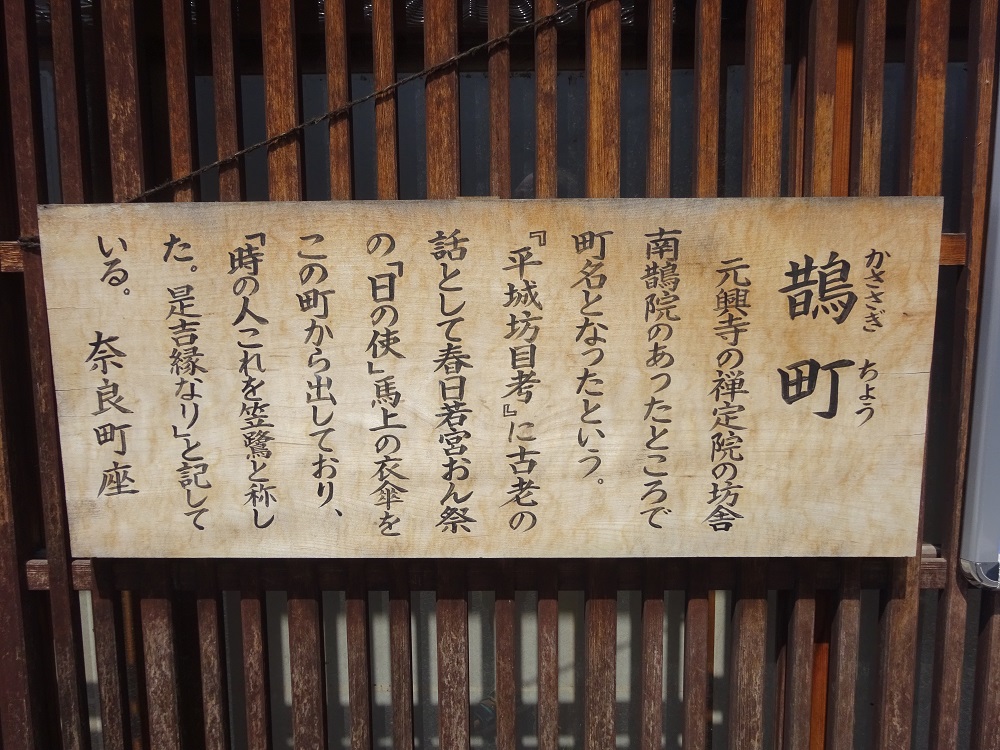 鵲町
かささぎ ちょう
元興寺の禅定院の坊舎
南鵲院のあったところで
町名となったという。
『平城坊目考』に古老の
話として春日若宮おん祭
の「日の使」馬上の衣傘を
この町から出しており、
「時の人これを笠鷺と称し
た。是吉縁なり」と記して
いる。 奈良町座